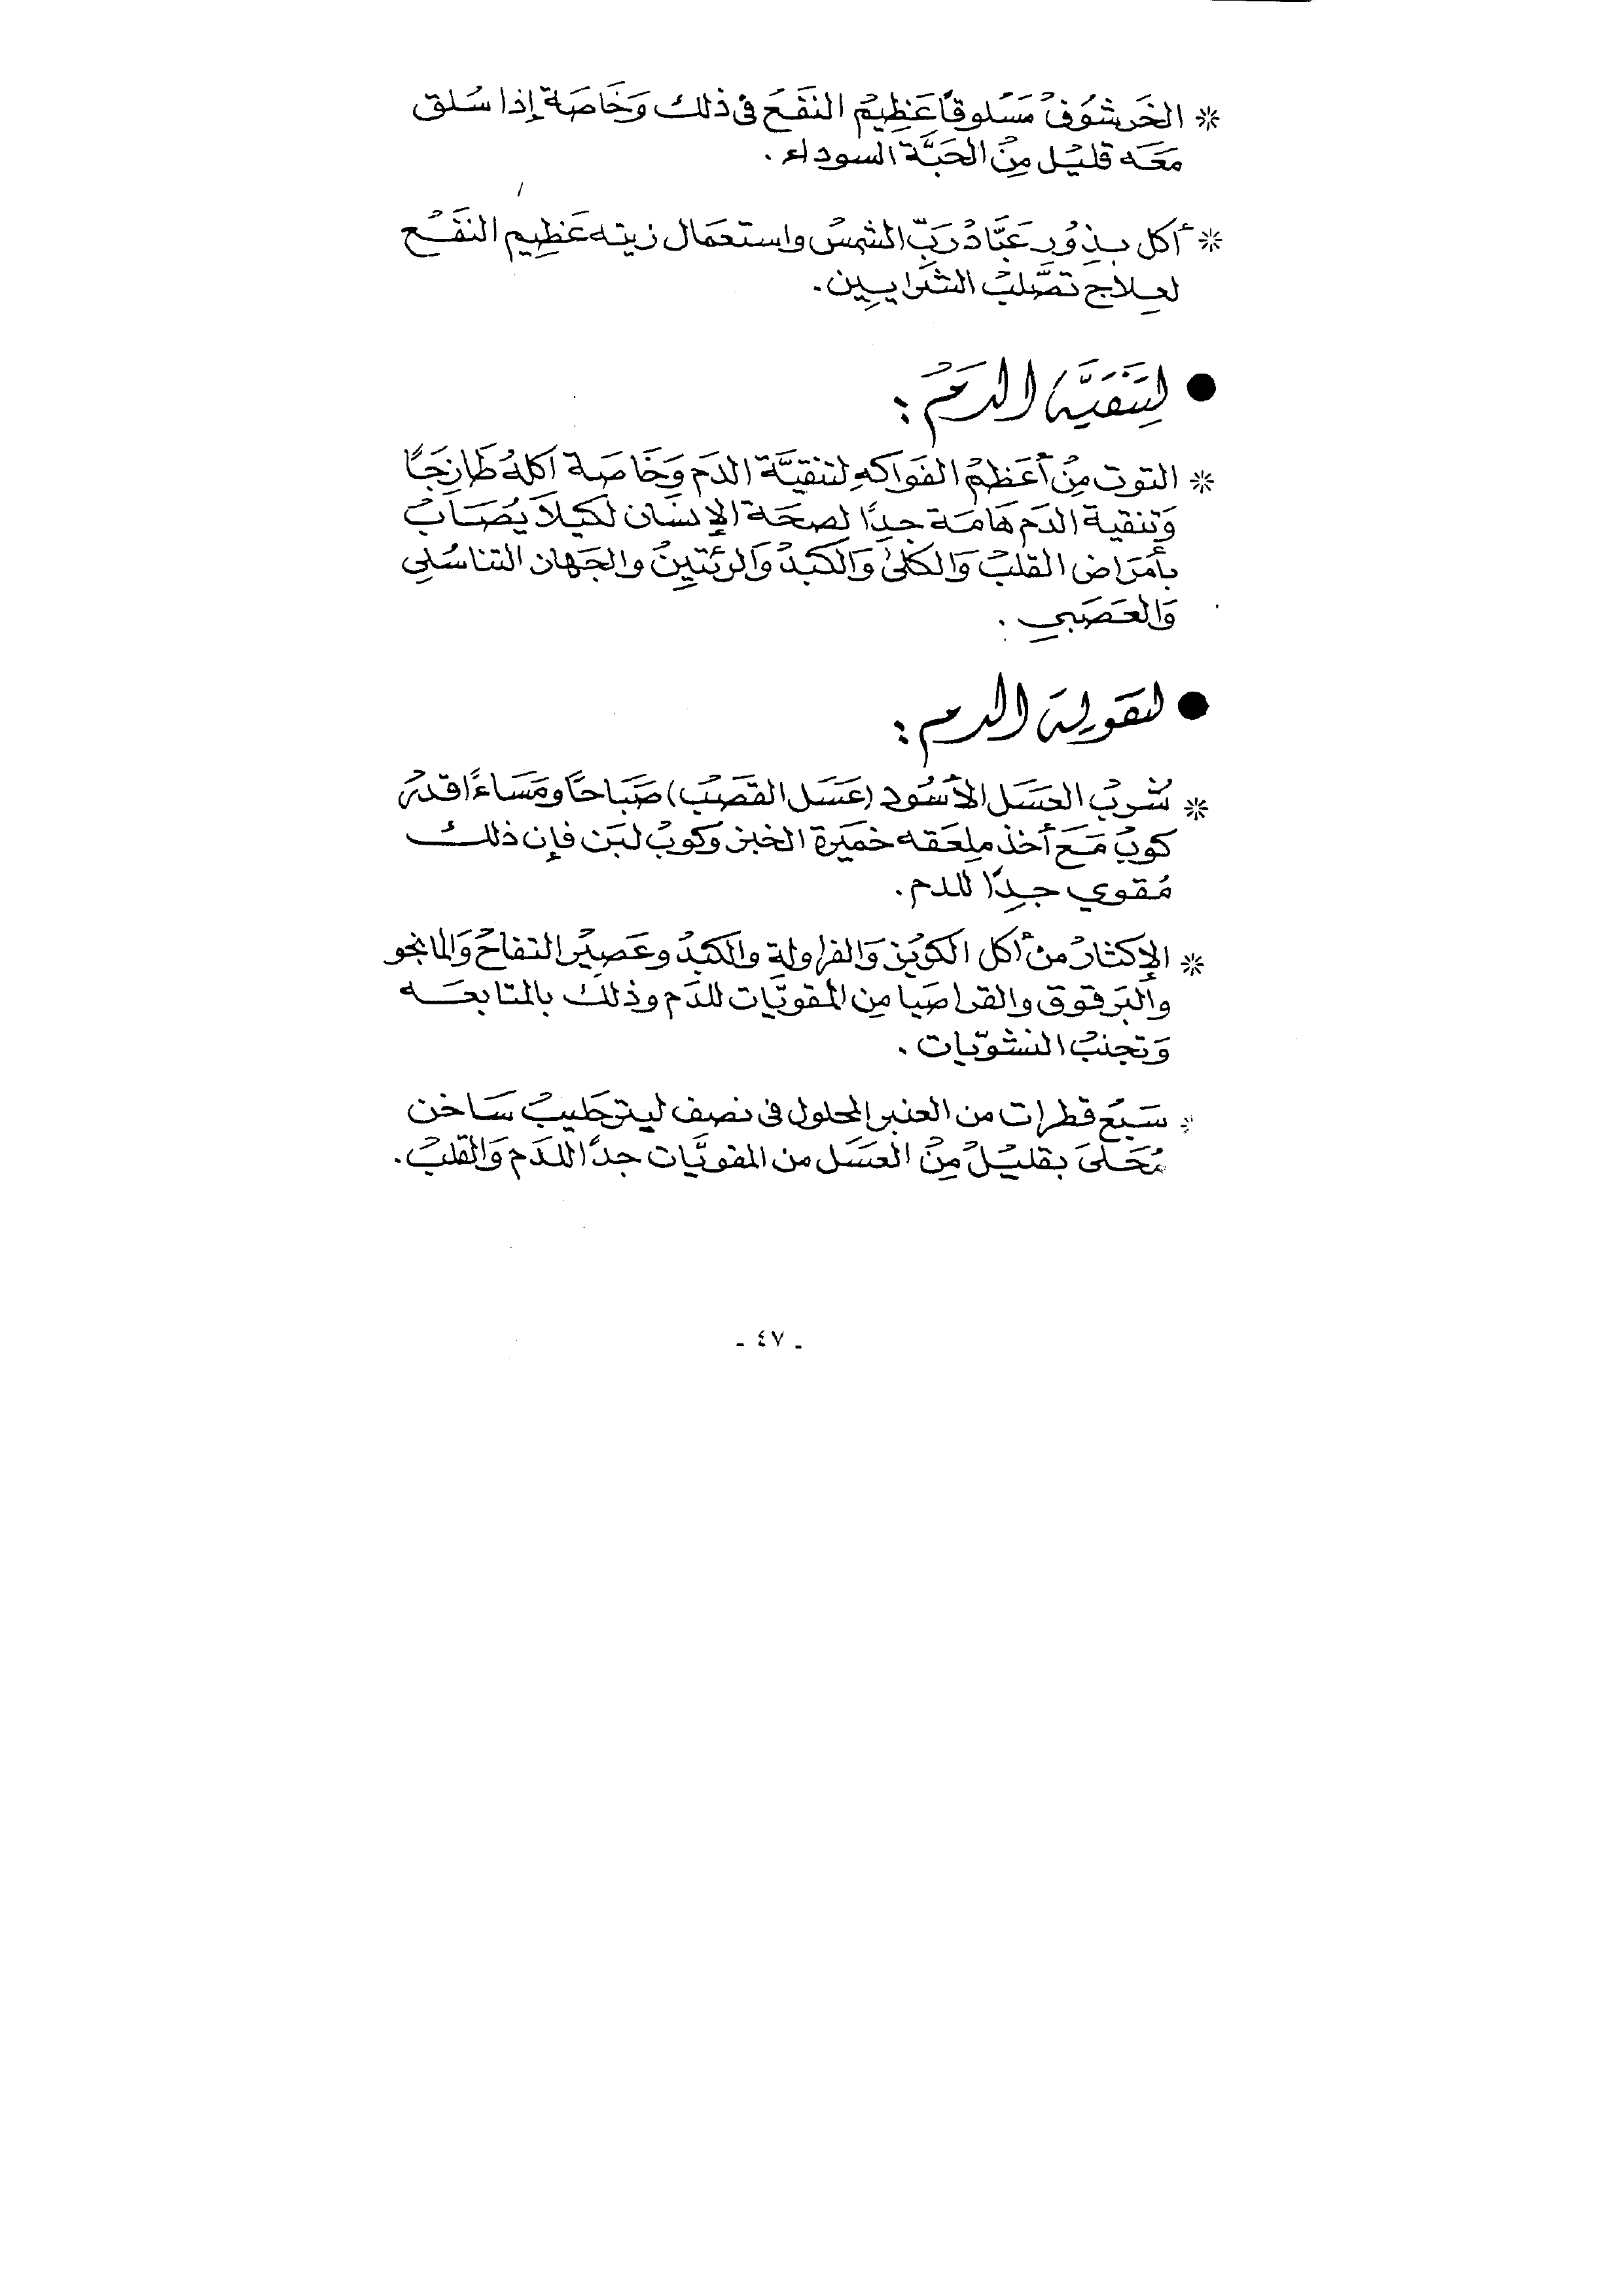 * الخَرشُوفُ مَسْلوقاً عَظِيمُ النفَعَ فى ذلك وَخَاصَة إذا سُلق
مَعَه قليْل مِنْ الحَبَّة السوداء .
* أكل بذوُر عَبَّادُ رَبِّ الشمسْ واستعمَال زيته عَظِيم النفَعْ
لعِلاج تصَّلبْ الشَرايِين .
● لِتَنْقيَّة الدَمْ :
* التوت مِنْ أعَظمْ الفَواكهِ لتنقيَّة الدَم وَخَاصَة اكلهُ طَازجًا
وَتنقية الدَم هَامَة جدًا لصِحَة الإنسَان لكيلاَ يُصَابْ
بأمَراض القلبْ وَالكلىٰ وَالكَبدْ وَالرئتينْ والجَهاز التناسُلِي
وَالعَصَبيِ .
● لتقَوية الدم :
* شُربْ العسَل الأسْوَد (عَسَل القصَبْ) صَبَاحًا ومَسَاءًا قدرْ
كوبْ مَعَ أخذ ملِعَقه خميَرة الخبز وكوبْ لبَن فإن ذلك
مُقوي جِدًا للدم .
* الإكثارْ من أكل الكوَيْز وَالفراولة والكَبدْ وعَصِيْر التفاحْ وَالمانجو
والبَرقوق والقراصَيا مِن المقويَّات للدَم وذلك بالمتابعَه
وَتجنبْ النشويّات .
* سَبْع قطرات من العنبر المحلول فى نصف ليترحَليبْ سَاخن
مُحَلىَ بقليْلْ مِنْ العسَل من المقويَّات جدًا للدَم وَالقلبْ .
ـ ٤٧ ـ